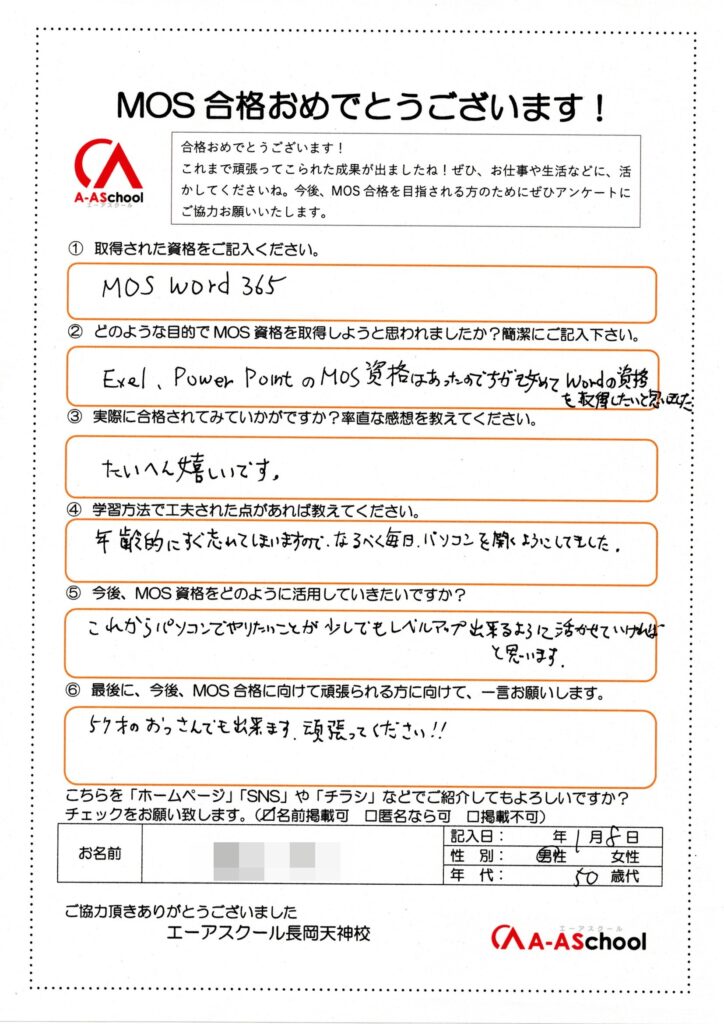 MOS 合格おめでとうございます!
A-ASchool
エーアスクール
合格おめでとうございます!
これまで頑張ってこられた成果が出ましたね!ぜひ、お仕事や生活などに、活
かしてくださいね。今後、MOS 合格を目指される方のためにぜひアンケートに
ご協力お願いいたします。
① 取得された資格をご記入ください。
MOS Word 365
② どのような目的で MOS 資格を取得しようと思われましたか?簡潔にご記入下さい。
Exel、Power Point の MOS 資格はあったのですが Wordの資格
を取得したいと思いました
③ 実際に合格されてみていかがですか?率直な感想を教えてください。
たいへん嬉しいです。
④ 学習方法で工夫された点があれば教えてください。
年齢的にすぐ忘れてしまいますので、なるべく毎日、パソコンを開くようにしてました。
⑤ 今後、MOS 資格をどのように活用していきたいですか?
これからパソコンでやりたいことが 少しでもレベルアップ 出来るように 活かせていければ
と思います。
⑥ 最後に、今後、MOS 合格に向けて頑張られる方に向けて、一言お願いします。
57才の おっさんでも出来ます、頑張ってください!!
こちらを「ホームページ」「SNS」や「チラシ」などでご紹介してもよろしいですか?
チェックをお願い致します。(☑名前掲載可 □匿名なら可 □掲載不可)
お名前
記入日: 年 1 月 8 日
性 別: 男性 女性
年 代: 50 歳代
ご協力頂きありがとうございました
エーアスクール長岡天神校
エーアスクール
A-ASchool